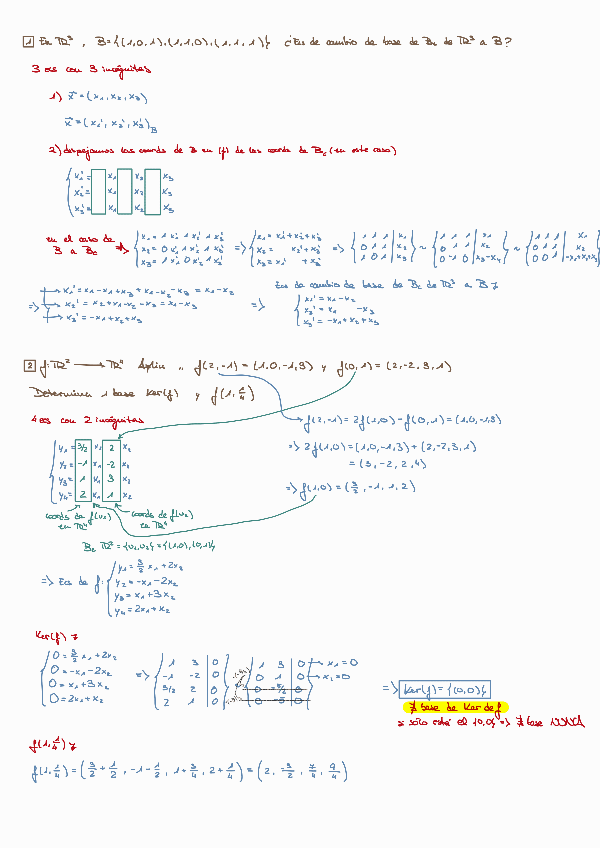 1 En ℝ³, B={(1,0,1),(1,1,0),(1,1,1)} ¿Ecs de cambio de base de Bc de ℝ³ a B?
3 ecs con 3 incógnitas
1) x⃗=(x₁,x₂,x₃)
x⃗=(x₁',x₂',x₃')B
2) despejamos las coords de B en (f) de las coords de Bc (en este caso)
x₁'= x₁ x₂ x₃
x₂'= x₁ x₂ x₃
x₃'= x₁ x₂ x₃
en el caso de B a Bc ⇒
x₁=1x₁'1x₂'1x₃'
x₂=0x₁'1x₂'1x₃'
x₃=1x₁'0x₂'1x₃'
⇒
x₁=x₁'+x₂'+x₃'
x₂= x₂'+x₃'
x₃=x₁' +x₃'
⇒
1 1 1 | x₁
0 1 1 | x₂
1 0 1 | x₃
~
1 1 1 | x₁
0 1 1 | x₂
0 -1 0 | x₃-x₁
~
1 1 1 | x₁
0 1 1 | x₂
0 0 1 | -x₁+x₂+x₃
⇒
x₁'=x₁-x₂
x₂'=x₂+x₁-x₂-x₃=x₁-x₃
x₃'=-x₁+x₂+x₃
⇒
Ecs de cambio de base de Bc de ℝ³ a B
x₁'=x₁-x₂
x₂'=x₁ -x₃
x₃'=-x₁+x₂+x₃
2 f:ℝ²⟶ℝ⁴ Aplin ,, f(2,-1)=(1,0,-1,3) y f(0,1)=(2,-2,3,1)
Determina 1 base Ker(f) y f(1,1/4)
4 ecs con 2 incógnitas
y₁= 3/2 x₁ 2 x₂
y₂= -1 x₁ -2 x₂
y₃= 1 x₁ 3 x₂
y₄= 2 x₁ 1 x₂
coords de f(u₁) en ℝ⁴
coords de f(u₂) en ℝ⁴
Bc ℝ²={u₁,u₂}={(1,0),(0,1)}
f(2,-1)=2f(1,0)-f(0,1)=(1,0,-1,3)
⇒ 2f(1,0)=(1,0,-1,3)+(2,-2,3,1)
=(3,-2,2,4)
⇒ f(1,0)=(3/2,-1,1,2)
⇒ Ecs de f:
y₁=3/2x₁+2x₂
y₂=-x₁-2x₂
y₃=x₁+3x₂
y₄=2x₁+x₂
Ker(f)
0=3/2x₁+2x₂
0=-x₁-2x₂
0=x₁+3x₂
0=2x₁+x₂
⇒
1 3 | 0
-1 -2 | 0
3/2 2 | 0
2 1 | 0
1 3 | 0 → x₁=0
0 1 | 0 → x₂=0
0 -5/2 0
0 -5 0
⇒ Ker(f)={(0,0)}
∄ base de Ker de f
si sólo está el (0,0) ⇒ ∄ base NUNCA
f(1,1/4)
f(1,1/4)=(3/2+1/2,-1-1/2,1+3/4,2+1/4)=(2,-3/2,7/4,9/4)